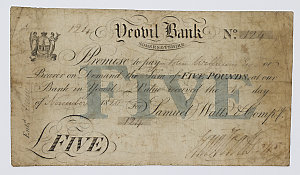 124 Yeovil Bank No. 124
SOMERSETSHIRE
I Promise to pay or
Bearer on Demand the Sum of FIVE POUNDS, at our
Bank in Yeovil Value received the day
of November For Samuel Watts & Compy.
124
FIVE
FIVE